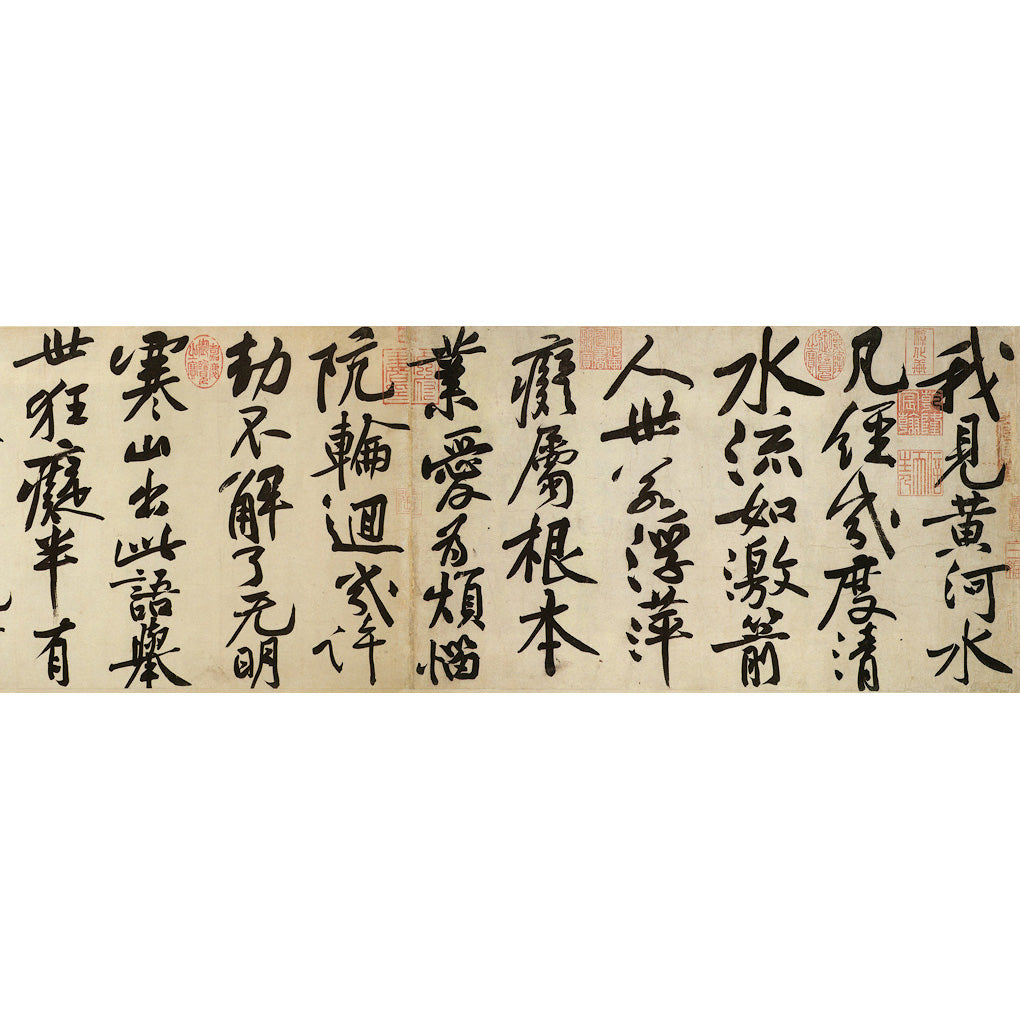 我見黄河水
凡經幾度清
水流如激箭
人世若浮萍
癡屬根本
業愛為煩惱
阬輪迴幾許
劫不解了无明
寒山出此語舉
世狂癡半有